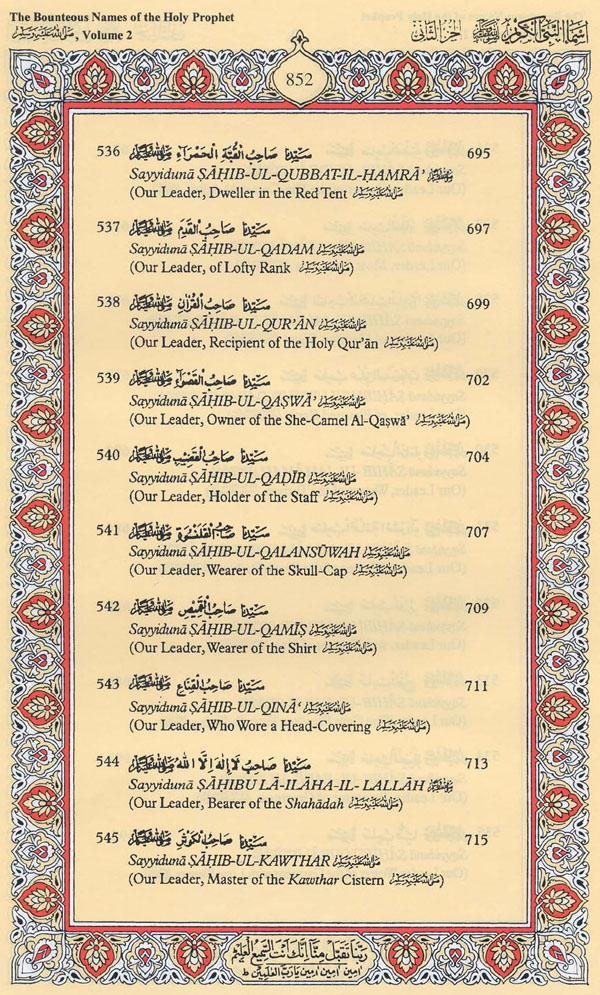 The Bounteous Names of the Holy Prophet
صلى الله عليه وسلم, Volume 2
اسماء النبي الكريم صلى الله عليه وسلم الجزء الثاني
852
536 سيدنا صاحب القبة الحمراء صلى الله عليه وسلم 695
Sayyidunā ṢĀḤIB-UL-QUBBAT-IL-HAMRĀ’ صلى الله عليه وسلم
(Our Leader, Dweller in the Red Tent صلى الله عليه وسلم
537 سيدنا صاحب القدم صلى الله عليه وسلم 697
Sayyidunā ṢĀḤIB-UL-QADAM صلى الله عليه وسلم
(Our Leader, of Lofty Rank صلى الله عليه وسلم)
538 سيدنا صاحب القرآن صلى الله عليه وسلم 699
Sayyidunā ṢĀḤIB-UL-QUR’ĀN صلى الله عليه وسلم
(Our Leader, Recipient of the Holy Qur’ān صلى الله عليه وسلم)
539 سيدنا صاحب القصواء صلى الله عليه وسلم 702
Sayyidunā ṢĀḤIB-UL-QAṢWĀ’ صلى الله عليه وسلم
(Our Leader, Owner of the She-Camel Al-Qaṣwā’ صلى الله عليه وسلم)
540 سيدنا صاحب القضيب صلى الله عليه وسلم 704
Sayyidunā ṢĀḤIB-UL-QAḌĪB صلى الله عليه وسلم
(Our Leader, Holder of the Staff صلى الله عليه وسلم)
541 سيدنا صاحب القلنسوة صلى الله عليه وسلم 707
Sayyidunā ṢĀḤIB-UL-QALANSŪWAH صلى الله عليه وسلم
(Our Leader, Wearer of the Skull-Cap صلى الله عليه وسلم)
542 سيدنا صاحب القميص صلى الله عليه وسلم 709
Sayyidunā ṢĀḤIB-UL-QAMĪṢ صلى الله عليه وسلم
(Our Leader, Wearer of the Shirt صلى الله عليه وسلم)
543 سيدنا صاحب القناع صلى الله عليه وسلم 711
Sayyidunā ṢĀḤIB-UL-QINĀ‘ صلى الله عليه وسلم
(Our Leader, Who Wore a Head-Covering صلى الله عليه وسلم)
544 سيدنا صاحب لا إله إلا الله صلى الله عليه وسلم 713
Sayyidunā ṢĀḤIBU LĀ-ILĀHA-IL- LALLĀH صلى الله عليه وسلم
(Our Leader, Bearer of the Shahādah صلى الله عليه وسلم)
545 سيدنا صاحب الكوثر صلى الله عليه وسلم 715
Sayyidunā ṢĀḤIB-UL-KAWTHAR صلى الله عليه وسلم
(Our Leader, Master of the Kawthar Cistern صلى الله عليه وسلم)
ربنا تقبل منا إنك أنت السميع العليم
امين امين امين يا رب العلمين ط